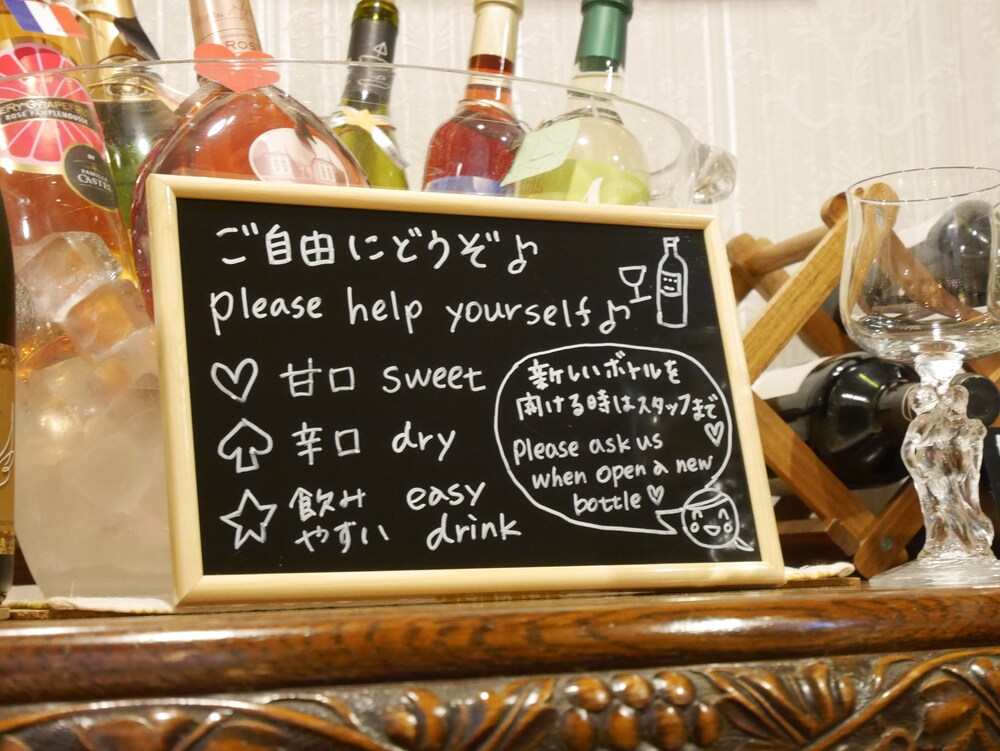 ROSÉ PAMPLEMOUSSE
BY
FAMILLE
CASTEL
ROS
ご自由にどうぞ♪
please help yourself♪
♡ 甘口 sweet
♤ 辛口 dry
☆ 飲み
やすい
easy
drink
新しいボトルを
開ける時はスタッフまで
♡
please ask us
when open a new
bottle♡